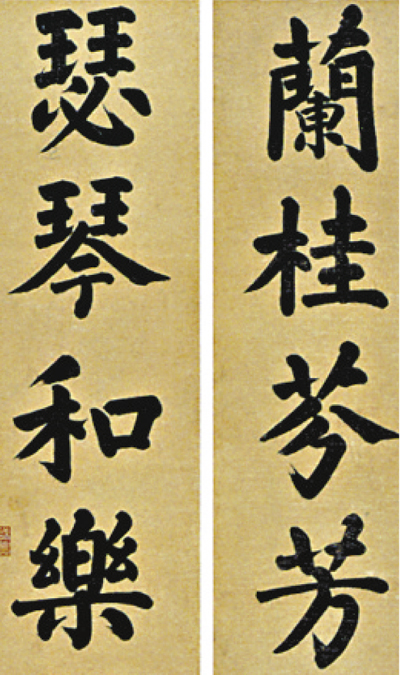 蘭桂芬芳
瑟琴和樂